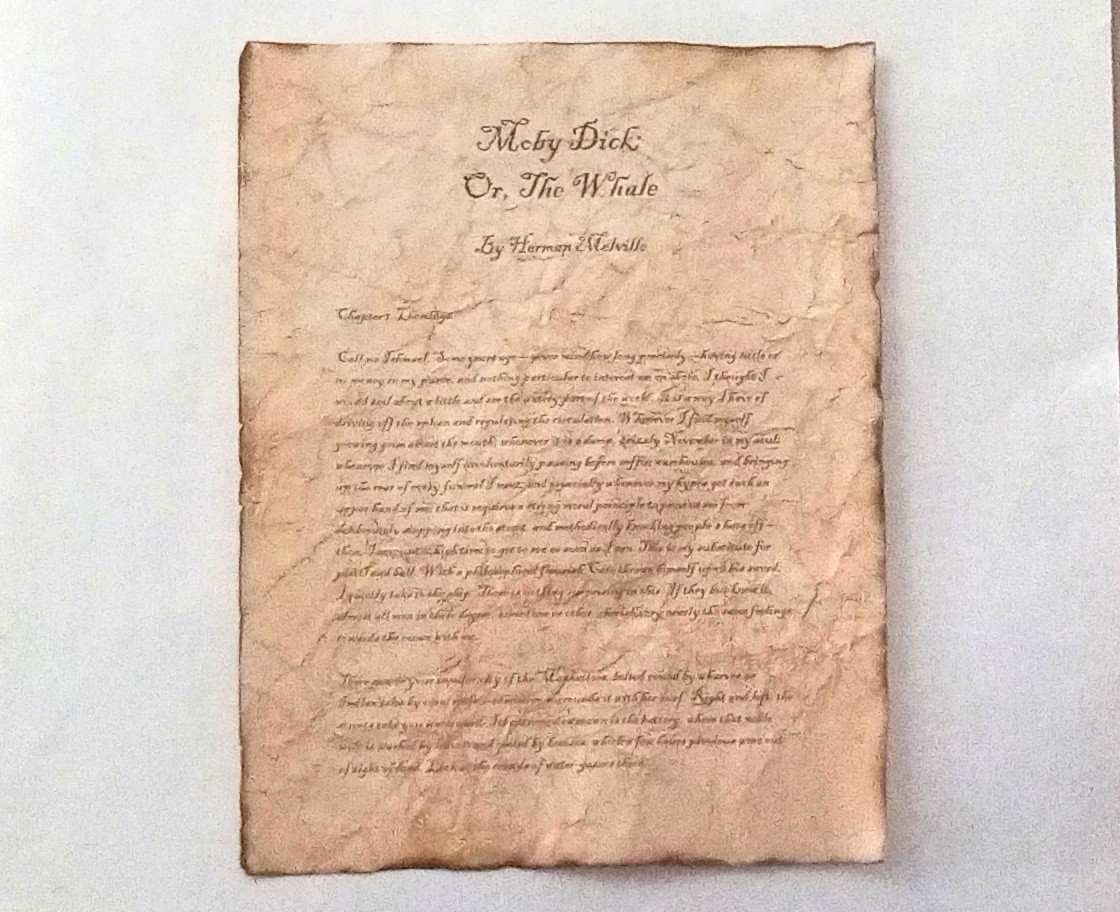 Moby Dick;
Or, The Whale
By Herman Melville
Chapter 1 Loomings
Call me Ishmael. Some years ago—never mind how long precisely—having little or
no money in my purse, and nothing particular to interest me on shore, I thought I
would sail about a little and see the watery part of the world. It is a way I have of
driving off the spleen and regulating the circulation. Whenever I find myself
growing grim about the mouth; whenever it is a damp, drizzly November in my soul;
whenever I find myself involuntarily pausing before coffin warehouses, and bringing
up the rear of every funeral I meet; and especially whenever my hypos get such an
upper hand of me, that it requires a strong moral principle to prevent me from
deliberately stepping into the street, and methodically knocking people's hats off—
then, I account it high time to get to sea as soon as I can. This is my substitute for
pistol and ball. With a philosophical flourish Cato throws himself upon his sword;
I quietly take to the ship. There is nothing surprising in this. If they but knew it,
almost all men in their degree, some time or other, cherish very nearly the same feelings
towards the ocean with me.
There now is your insular city of the Manhattoes, belted round by wharves as
Indian isles by coral reefs—commerce surrounds it with her surf. Right and left, the
streets take you waterward. Its extreme downtown is the battery, where that noble
mole is washed by waves, and cooled by breezes, which a few hours previous were out
of sight of land. Look at the crowds of water-gazers there.